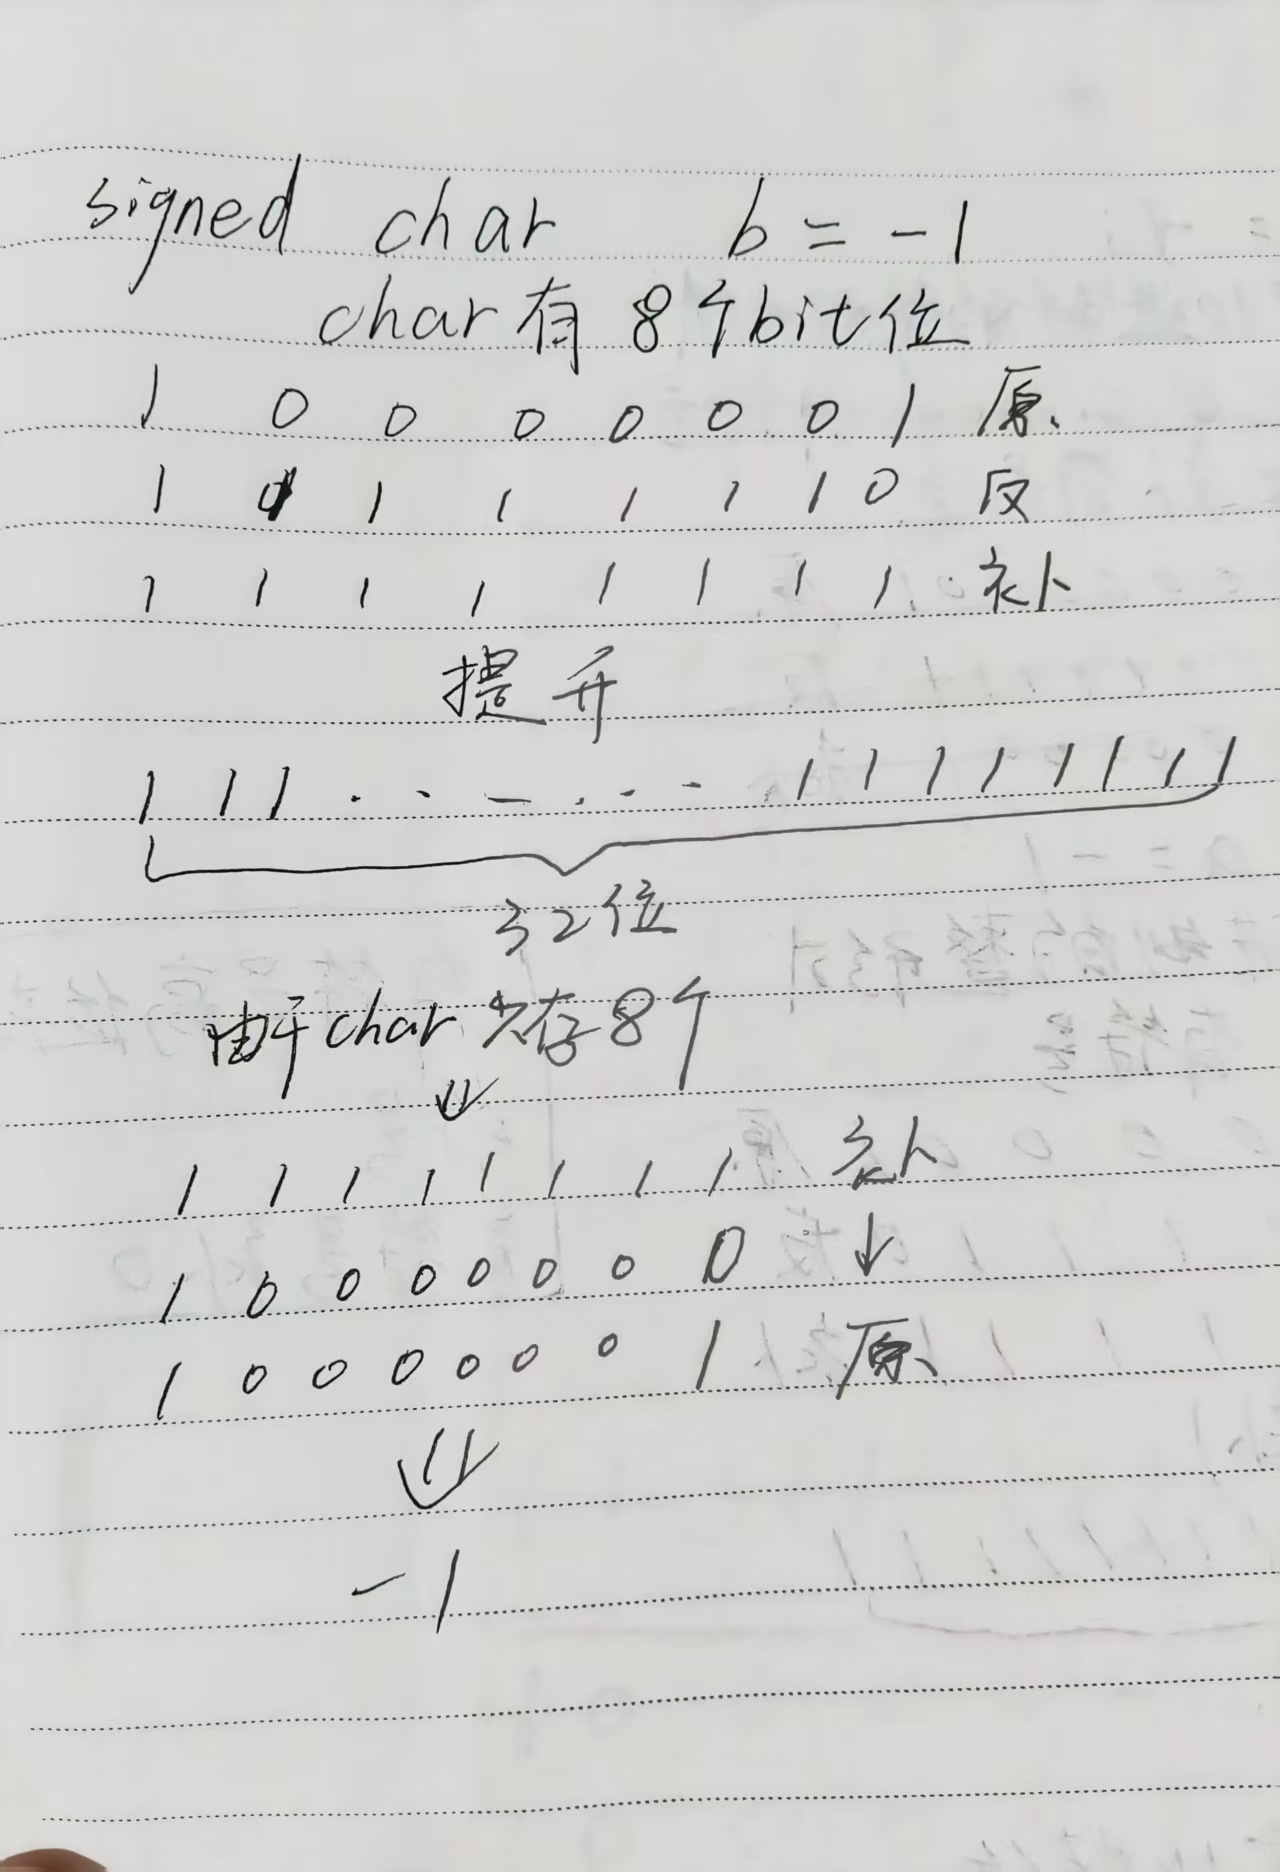 signed char b = -1
char有8个bit位
1 0 0 0 0 0 0 1 原
1 1 1 1 1 1 1 0 反
1 1 1 1 1 1 1 1 补
提升
1 1 1 . . - . . . - 1 1 1 1 1 1 1 1
32位
由于char只存8个
⇓
1 1 1 1 1 1 1 1 补
1 0 0 0 0 0 0 0 ↓
1 0 0 0 0 0 0 1 原
⇓
-1